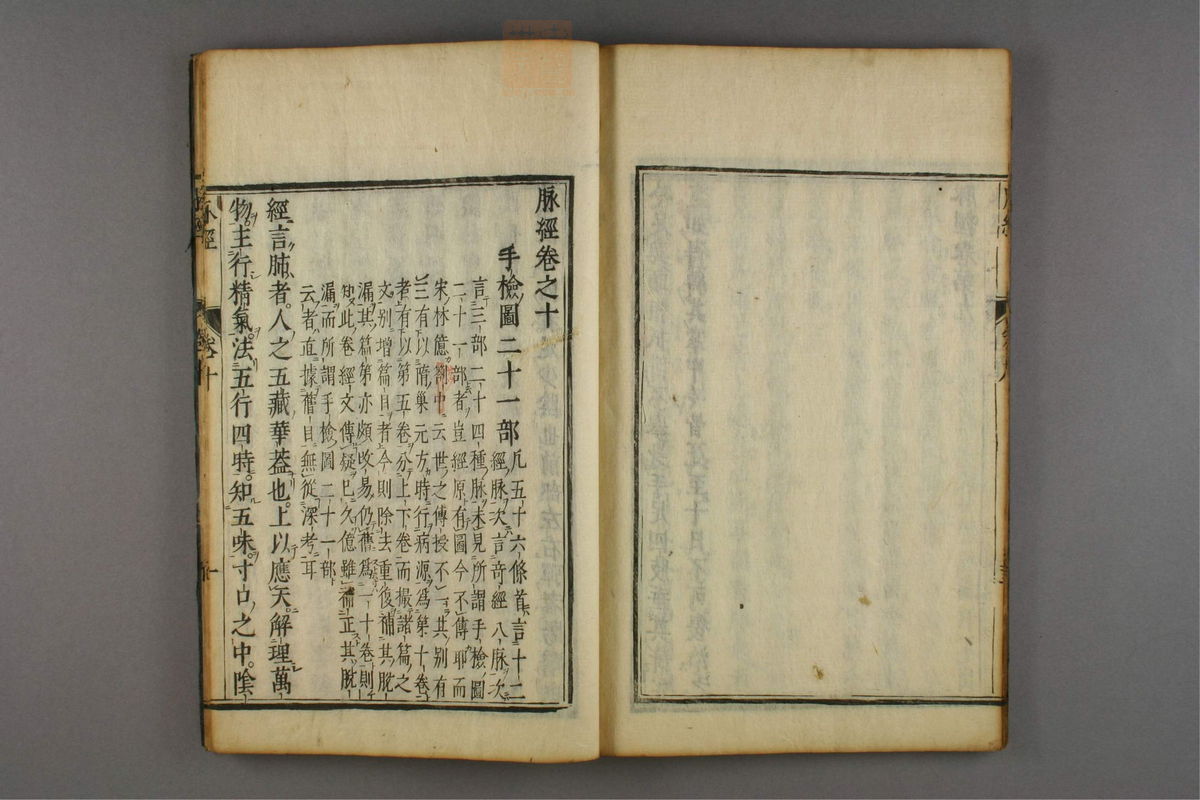 脉經卷之十
手檢圖二十一部
凡五十六條首言十二
經脉次言奇經八脉次
言三部二十四種脉未見所謂手檢圖
二十一部者豈經原有圖今不傳耶而
宋林億 云世之傳授不一其別有
三有以隋巢元方時行病源爲第十卷
者有以第五卷分上下卷而撮諸篇之
文別增篇目者今則除去重復補其脫
漏其篇第亦頗改易仍舊爲一十卷則
知此卷經文傳疑已久億雖補正其脫
漏而所謂手檢圖二十一部
云者直據舊目無從深考耳
經言肺者人之五藏華蓋也上以應天解理萬
物主行精氣法五行四時知五味寸口之中陰
脉經
卷十